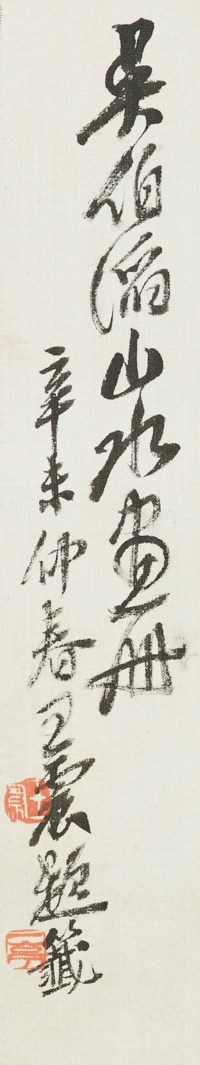 吴伯滔山水画册
辛未仲春王震题籤